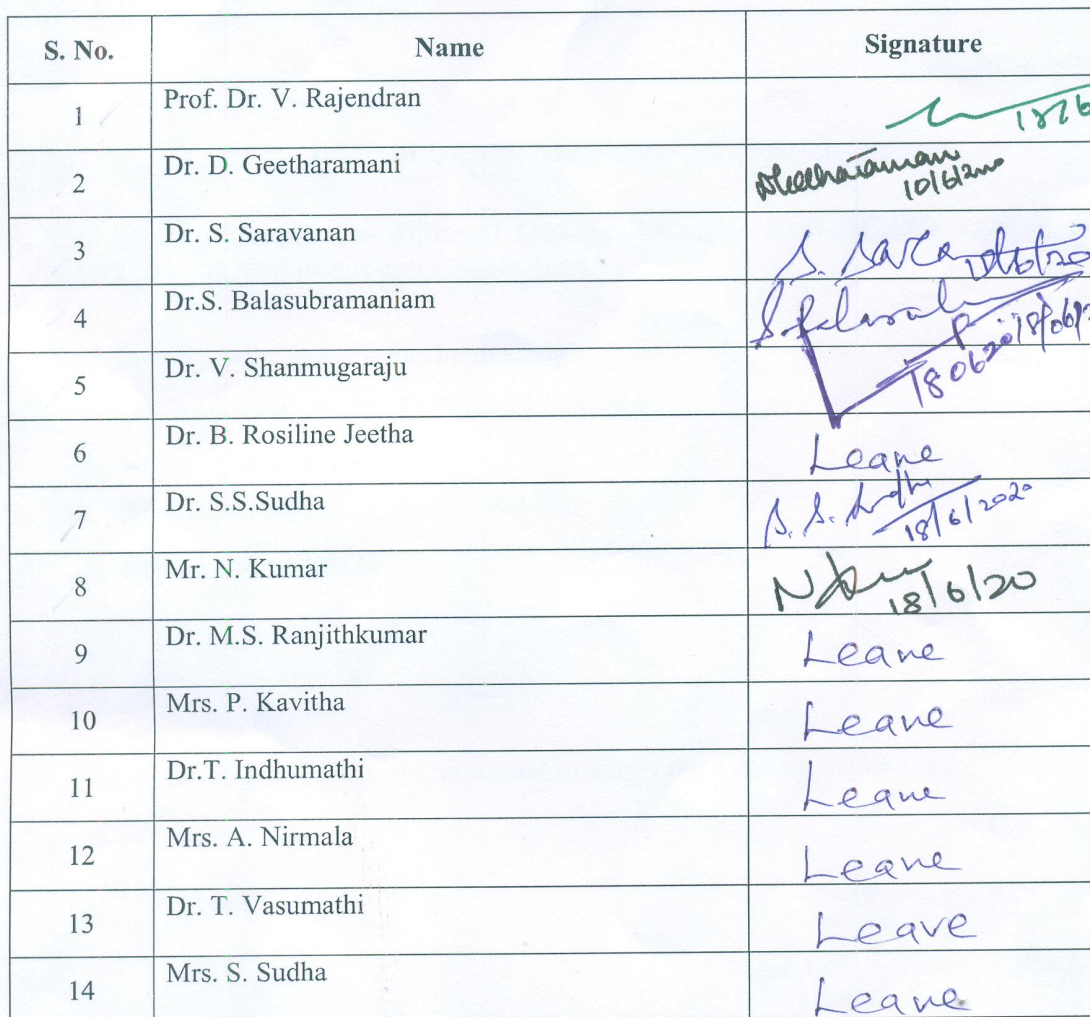 S. No. Name Signature
1 Prof. Dr. V. Rajendran
2 Dr. D. Geetharamani 10/6/2020
3 Dr. S. Saravanan S. Sara
4 Dr.S. Balasubramaniam 18/06/2
5 Dr. V. Shanmugaraju 180620
6 Dr. B. Rosiline Jeetha Leave
7 Dr. S.S.Sudha S. S. Sudha 18/6/2020
8 Mr. N. Kumar 18/6/20
9 Dr. M.S. Ranjithkumar Leave
10 Mrs. P. Kavitha Leave
11 Dr.T. Indhumathi Leave
12 Mrs. A. Nirmala Leave
13 Dr. T. Vasumathi Leave
14 Mrs. S. Sudha Leave